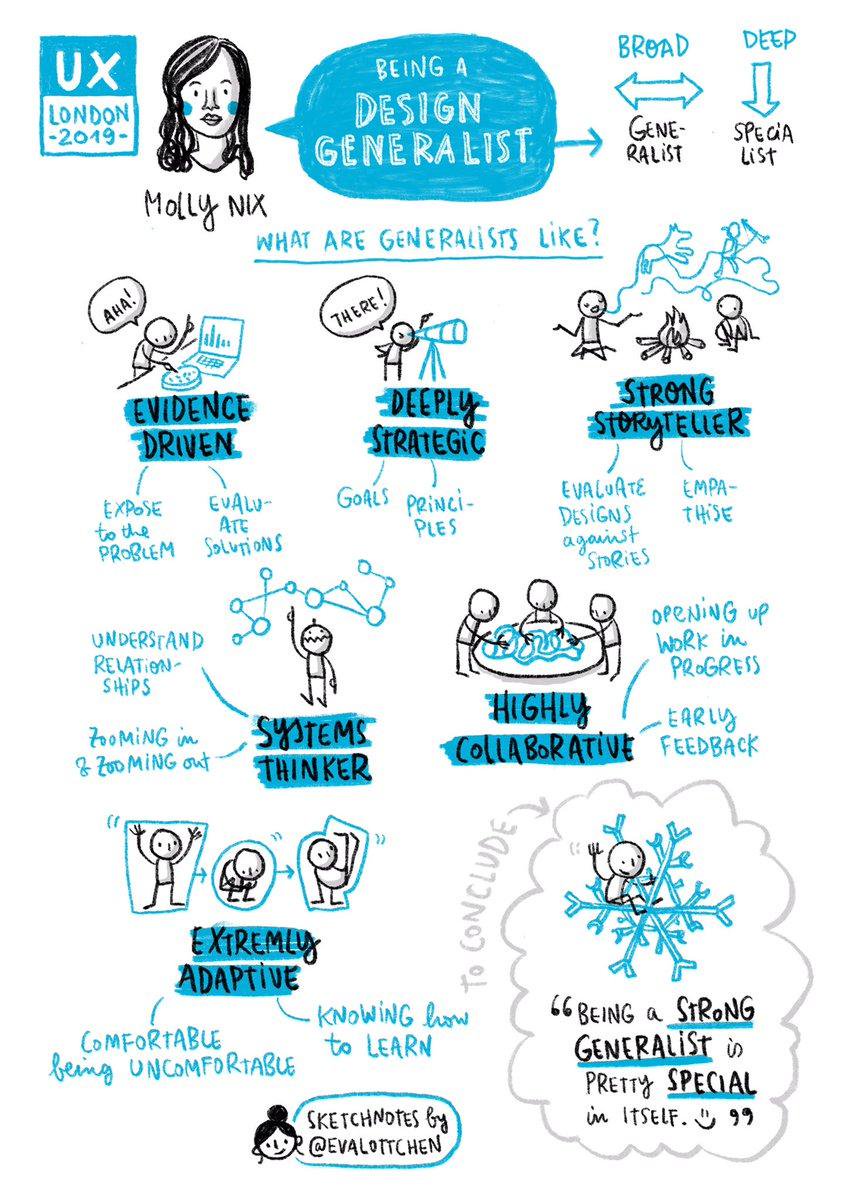 UX
LONDON
-2019-
MOLLY NIX
BEING A
DESIGN
GENERALIST
BROAD
GENE-
RALIST
DEEP
SPECIA
LIST
WHAT ARE GENERALISTS LIKE?
AHA!
EVIDENCE
DRIVEN
EXPOSE
to the
PROBLEM
EVALU-
ATE
SOLUTIONS
THERE!
DEEPLY
STRATEGIC
GOALS
PRINCI-
PLES
STRONG
STORYTELLER
EVALUATE
DESIGNS
against
STORIES
EMPA-
THISE
UNDERSTAND
RELATION-
SHIPS
ZOOMING in
& ZOOMING out
SYSTEMS
THINKER
HIGHLY
COLLABORATIVE
OPENING UP
WORK in
PROGRESS
EARLY
FEEDBACK
EXTREMLY
ADAPTIVE
COMFORTABLE
being UNCOMFORTABLE
KNOWING how
to LEARN
TO CONCLUDE
“BEING a STRONG
GENERALIST is
PRETTY SPECIAL
in ITSELF. ”
SKETCHNOTES by
@EVALOTTCHEN